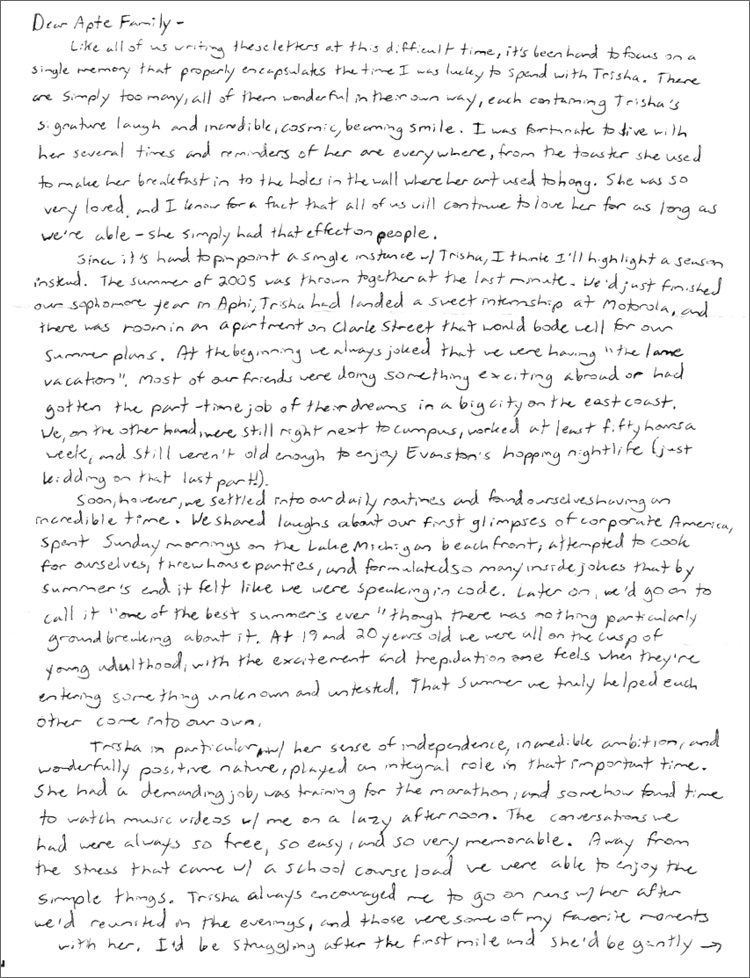 Dear Apte Family -
Like all of us writing these letters at this difficult time, it's been hard to focus on a
single memory that properly encapsulates the time I was lucky to spend with Trisha. There
are simply too many, all of them wonderful in their own way, each containing Trisha's
signature laugh and incredible, cosmic, beaming smile. I was fortunate to live with
her several times and reminders of her are everywhere, from the toaster she used
to make her breakfast in to the holes in the wall where her art used to hang. She was so
very loved, and I know for a fact that all of us will continue to love her for as long as
we're able - she simply had that effect on people.
Since it's hard to pinpoint a single instance w/ Trisha, I think I'll highlight a season
instead. The summer of 2005 was thrown together at the last minute. We'd just finished
our sophomore year in Aphi, Trisha had landed a sweet internship at Motorola, and
there was room in an apartment on Clark Street that would bode well for our
summer plans. At the beginning we always joked that we were having "the lame
vacation". Most of our friends were doing something exciting abroad or had
gotten the part-time job of their dreams in a big city on the east coast.
We, on the other hand, were still right next to campus, worked at least fifty hours a
week, and still weren't old enough to enjoy Evanston's hopping nightlife (just
kidding on that last part!!).
Soon, however, we settled into our daily routines and found ourselves having an
incredible time. We shared laughs about our first glimpses of corporate America,
spent Sunday mornings on the Lake Michigan beachfront, attempted to cook
for ourselves, threw house parties, and formulated so many inside jokes that by
summer's end it felt like we were speaking in code. Later on, we'd go on to
call it "one of the best summer's ever" though there was nothing particularly
groundbreaking about it. At 19 and 20 years old we were all on the cusp of
young adulthood, with the excitement and trepidation one feels when they're
entering something unknown and untested. That summer we truly helped each
other come into our own.
Trisha in particular, w/ her sense of independence, incredible ambition, and
wonderfully positive nature, played an integral role in that important time.
She had a demanding job, was training for the marathon, and somehow found time
to watch music videos w/ me on a lazy afternoon. The conversations we
had were always so free, so easy, and so very memorable. Away from
the stress that came w/ a school course load we were able to enjoy the
simple things. Trisha always encouraged me to go on runs w/ her after
we'd reunited in the evenings, and those were some of my favorite moments
with her. I'd be struggling after the first mile and she'd be gently →